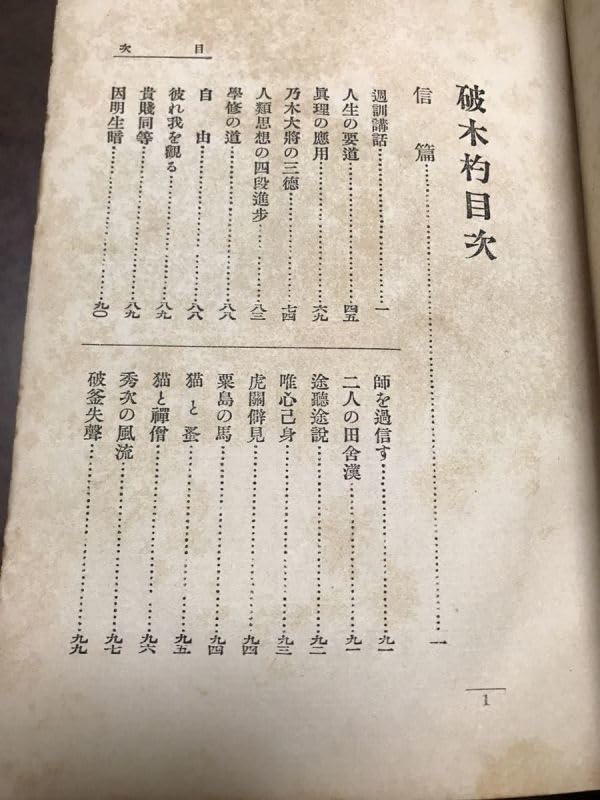 目次
破木杓目次
信篇……一
週訓講話……一
人生の要道……四五
眞理の應用……六九
乃木大將の三德……七四
人類思想の四段進步……八三
學修の道……八八
自由……八八
彼れ我を觀る……八九
貴賤同等……八九
因明生暗……九〇
師を過信す……九一
二人の田舍漢……九一
途聽途說……九二
唯心己身……九三
虎關僻見……九四
粟島の馬……九四
猫と蚤……九五
猫と禪僧……九六
秀次の風流……九七
破釜失聲……九九
1